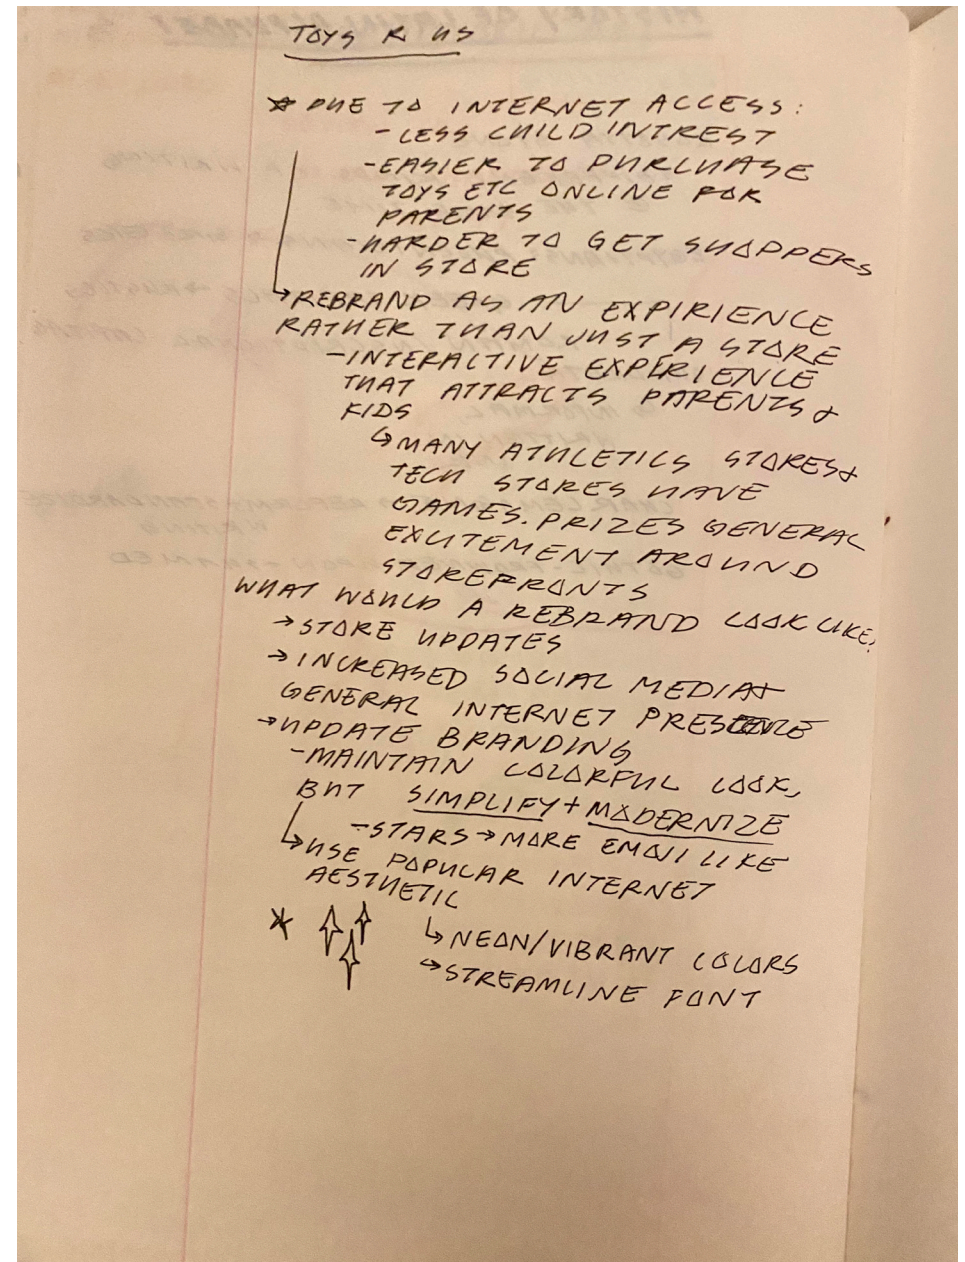 TOYS R US
DUE TO INTERNET ACCESS:
- LESS CHILD INTREST
- EASIER TO PURCHASE
TOYS ETC ONLINE FOR
PARENTS
- HARDER TO GET SHOPPERS
IN STORE
↳ REBRAND AS AN EXPIRIENCE
RATHER THAN JUST A STORE
- INTERACTIVE EXPERIENCE
THAT ATTRACTS PARENTS &
KIDS
↳ MANY ATHLETICS STORES &
TECH STORES HAVE
GAMES. PRIZES GENERAL
EXCITEMENT AROUND
STOREFRONTS
WHAT WOULD A REBRAND LOOK LIKE?
→ STORE UPDATES
→ INCREASED SOCIAL MEDIA +
GENERAL INTERNET PRESENCE
→ UPDATE BRANDING
- MAINTAIN COLORFUL LOOK,
BUT SIMPLIFY + MODERNIZE
- STARS → MORE EMOJI LIKE
↳ USE POPULAR INTERNET
AESTHETIC
↳ NEON/VIBRANT COLORS
↳ STREAMLINE FONT